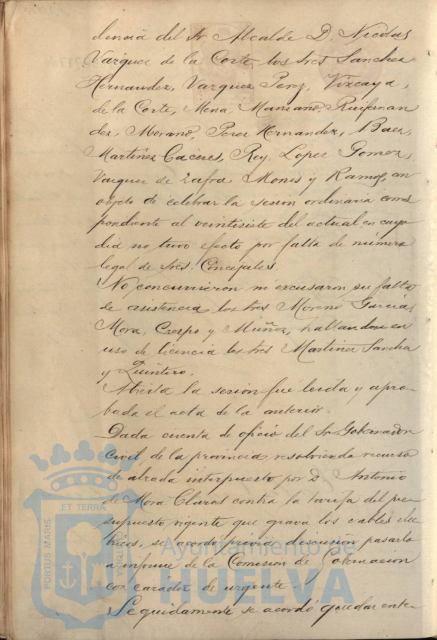 dencia del Sr Alcalde D. Nicolas
Vazquez de la Corte los Sres Sanchez
Hernandez, Vazquez Perez, Vizcaya,
de la Corte, Mena, Manzano, Ruifernan
dez, Morano, Perez Hernandez, Baez,
Martinez Caceres, Rey, Lopez Gomez,
Vazquez de Zafra, Mones y Ramos, con
objeto de celebrar la sesion ordinaria corres
pondiente al veintisiete del actual en cuyo
dia no tuvo efecto por falta de numero
legal de Sres. Concejales
No concurrieron ni excusaron su falta
de asistencia los Sres Moreno Garcia,
Mora, Crespo y Muñoz, hallandose en
uso de licencia los Sres Martinez Sanchez
y Quintero.
Abierta la sesion fue leida y apro
bada el acta de la anterior.
Dada cuenta de oficio del Sr Gobernador
Civil de la provincia resolviendo recurso
de alzada interpuesto por D. Antonio
de Mora Claros contra la tarifa del pre
supuesto vigente que grava los cables elec
tricos, se acordó previa discusion pasarlo
a informe de la Comision de Gobernacion
con caracter de urgente.
Seguidamente se acordó quedar ente
PORTUS MARIS ET TERRAE
Ayuntamiento de
HUELVA